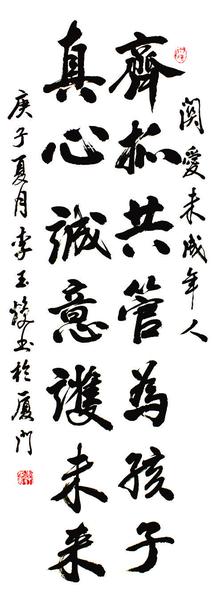 關愛未成年人
齊抓共管為孩子
真心誠意護未来
庚子夏月李玉  書於厦门